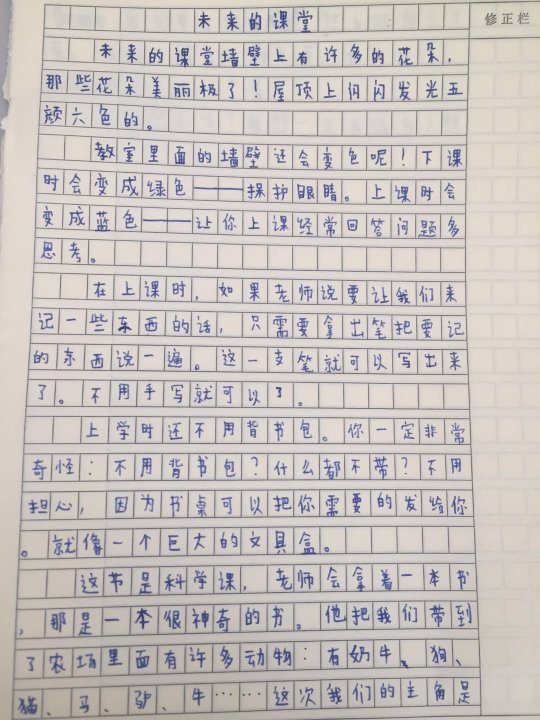 修正栏
未来的课堂
未来的课堂墙壁上有许多的花朵，
那些花朵美丽极了！屋顶上闪闪发光五
颜六色的。
教室里面的墙壁还会变色呢！下课
时会变成绿色——保护眼睛。上课时会
变成蓝色——让你上课经常回答问题多
思考。
在上课时，如果老师说要让我们来
记一些东西的话，只需要拿出笔把要记
的东西说一遍。这一支笔就可以写出来
了。不用手写就可以了。
上学时还不用背书包。你一定非常
奇怪：不用背书包？什么都不带？不用
担心，因为书桌可以把你需要的发给你
。就像一个巨大的文具盒。
这节是科学课，老师会拿着一本书
，那是一本很神奇的书。他把我们带到
了农场里面有许多动物：有奶牛、狗、
猫、马、驴、牛……这次我们的主角是